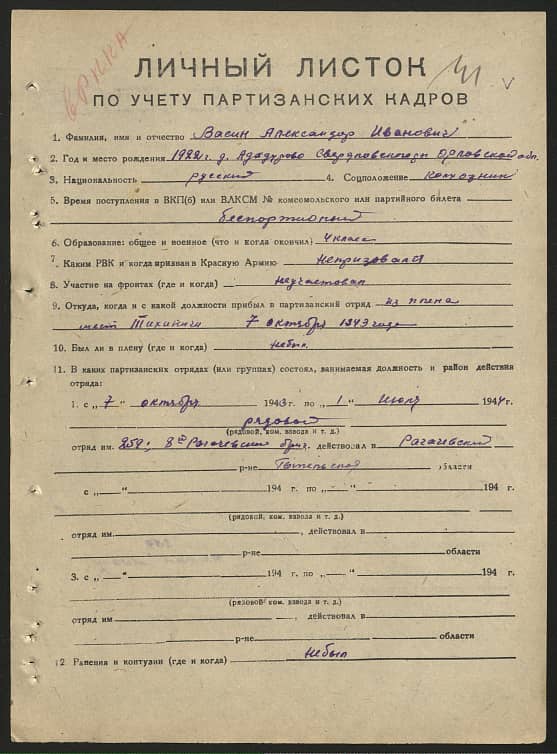 в РККА
ЛИЧНЫЙ ЛИСТОК
ПО УЧЕТУ ПАРТИЗАНСКИХ КАДРОВ
1. Фамилия, имя и отчество Васин Александр Иванович
2. Год и место рождения 1922 г. д. Свердловского р. Орловской обл.
3. Национальность русский 4. Соцположение колхозник
5. Время поступления в ВКП(б) или ВЛКСМ № комсомольского или партийного билета
беспортионый
6. Образование: общее и военное (что и когда окончил) 4 класса
7. Каким РВК и когда призван в Красную Армию непризовался
8. Участие на фронтах (где и когда) неучаствовал
9. Откуда, когда и с какой должности прибыл в партизанский отряд из плена
мест. Тихиничи 7 октября 1943 года
10. Был ли в плену (где и когда) небыл
11. В каких партизанских отрядах (или группах) состоял, занимаемая должность и район действия
отряда:
1. с „7“ октября 1943 г. по „1“ июля 1944 г.
рядовой
(рядовой, ком. взвода и т. д.)
отряд им. 252; 8ой Рогачевский бриг. действовал в Рагачевский
р-не Гомельской области
с „ “ 194 г. по „ “ 194 г.
(рядовой, ком. взвода и т. д.)
отряд им. , действовал в
р-не области
3. с „ “ 194 г. по „ “ 194 г.
(рядовой, ком. взвода и т. д.)
отряд им , действовал в
р-не области
12. Ранения и контузии (где и когда) небыл